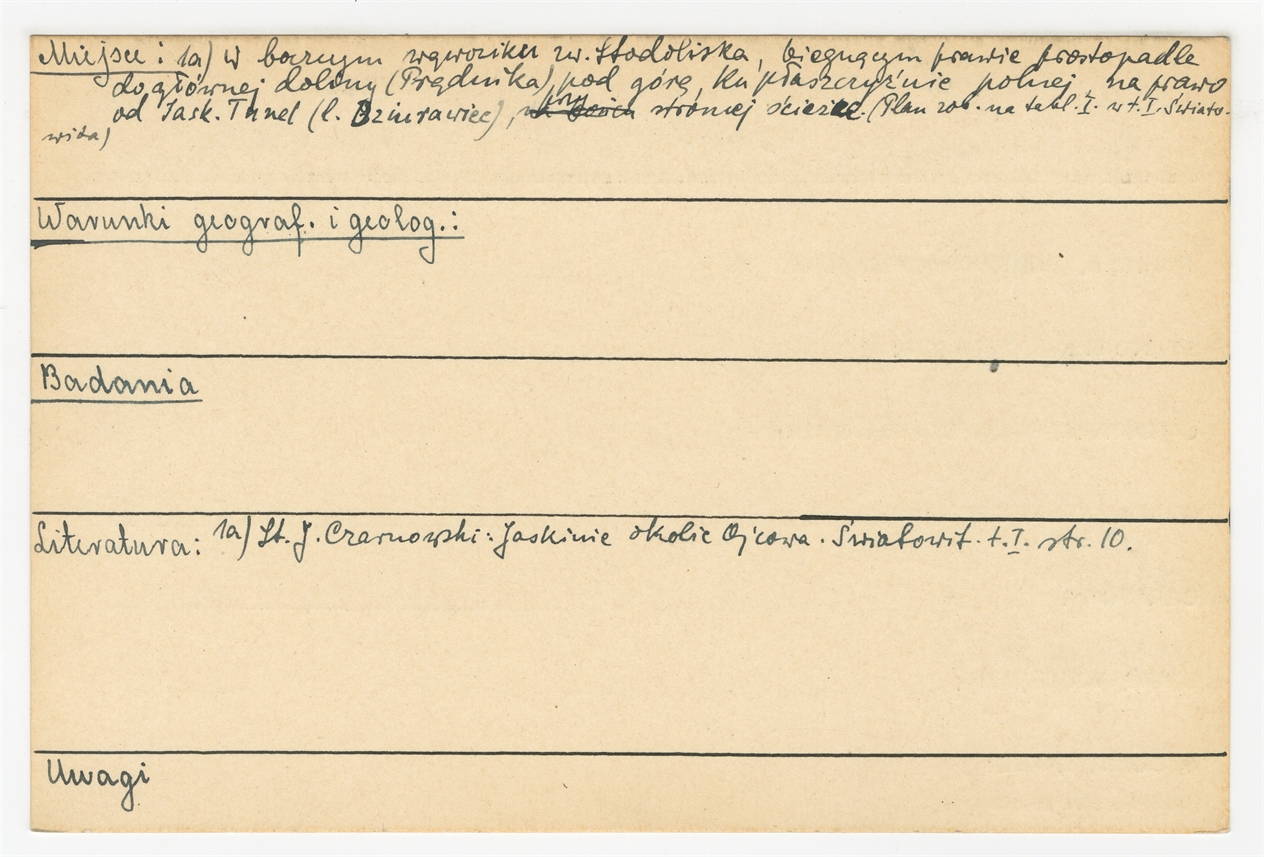 Miejsce: 1a) w bocznym wąwoziku zw. Stodoliska, biegnącym prawie prostopadle
do głównej doliny (Prądnika), pod górę, ku płaszczyźnie polnej, na prawo
od Jask. Tunel (l. Dziurawiec), przy stromej ścieżce. (Plan zob. na tabl. I. w t. I. Świato-
wida)
Warunki geograf. i geolog.:
Badania
Literatura: 1a) St. J. Czarnowski: Jaskinie okolic Ojcowa. Światowit. t. I. str. 10.
Uwagi